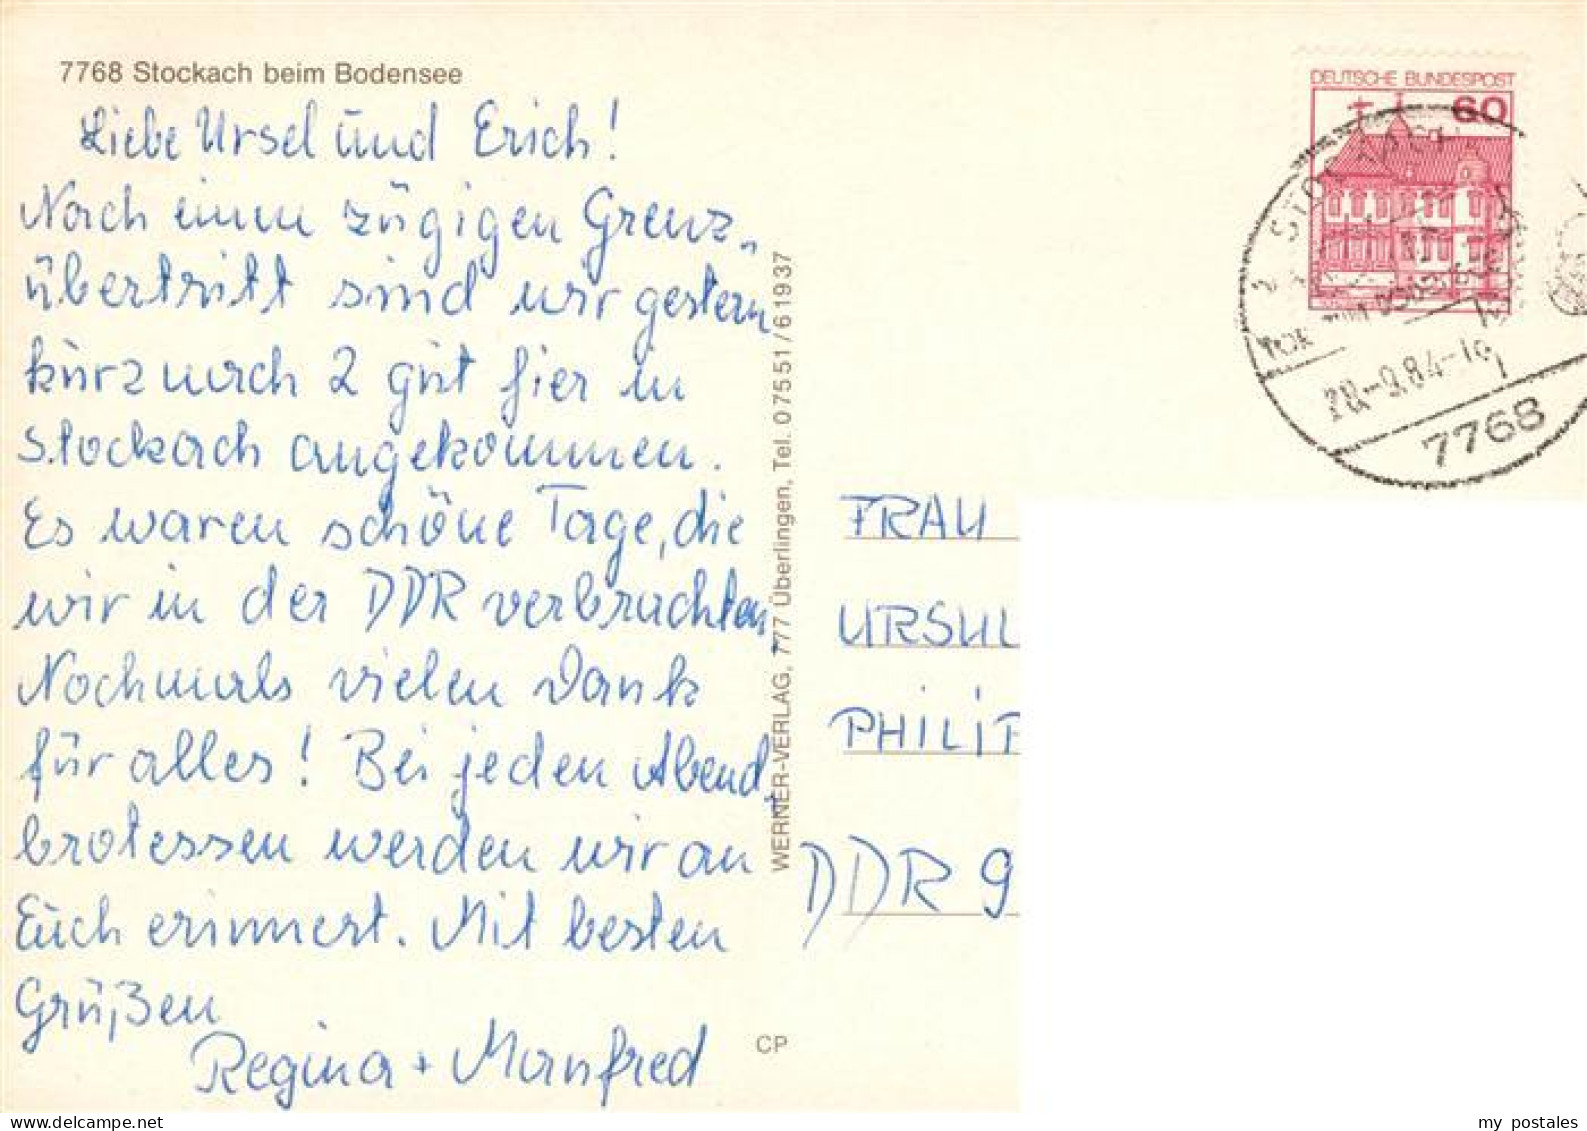 7768 Stockach beim Bodensee
Liebe Ursel und Erich!
Nach einem zügigen Grenz-
übertritt sind wir gestern
kurz nach 2 gut hier in
Stockach angekommen.
Es waren schöne Tage, die
wir in der DDR verbrachten.
Nochmals vielen Dank
für alles! Bei jeden Abend-
brotessen werden wir an
Euch erinnert. Mit besten
Grüßen
Regina + Manfred
WERNER-VERLAG, 777 Überlingen, Tel. 07551/61937
CP
DEUTSCHE BUNDESPOST
60
STOCKACH
-9.84-
7768
FRAU
URSUL
PHILIP
DDR 9
my postales